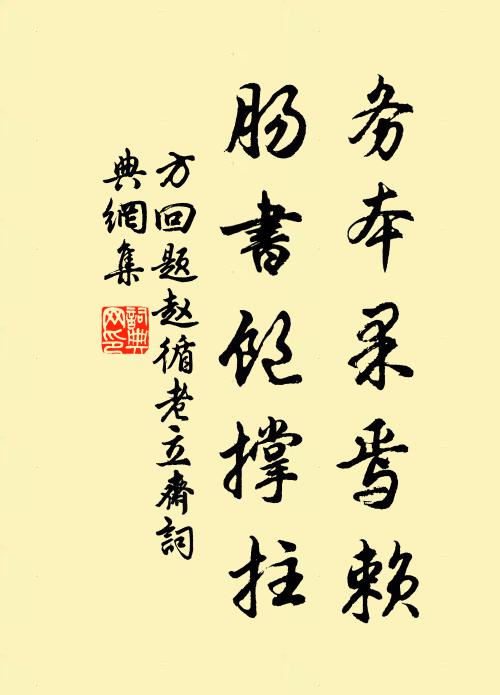 务本果焉赖
肠书饱撑拄
方回题赵循老立斋詞
典網集
詞典
网印